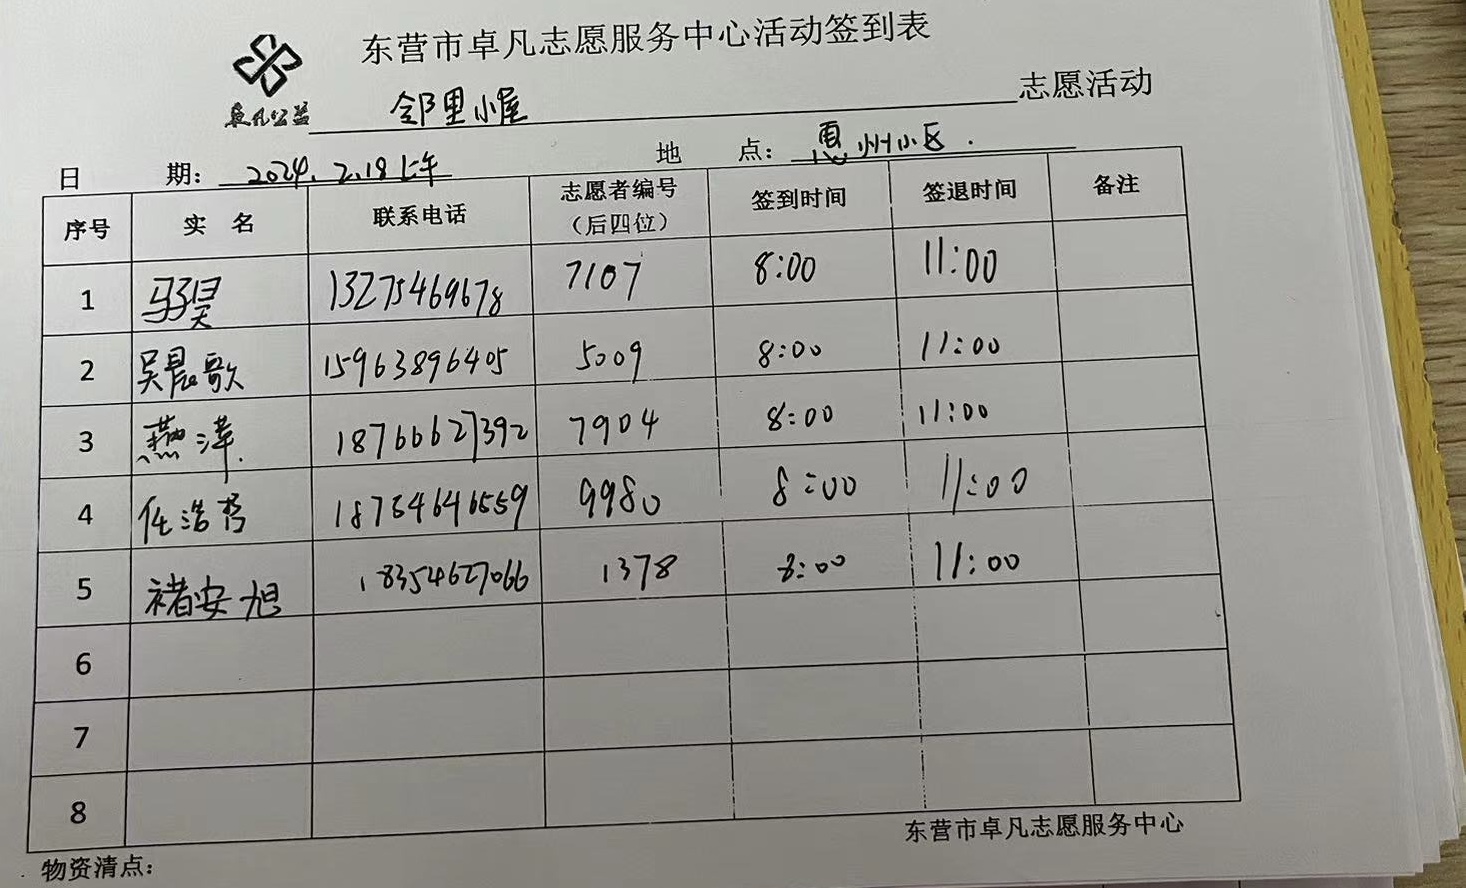 东营市卓凡志愿服务中心活动签到表
卓凡公益 邻里小屋 志愿活动
日 期: 2024.2.18上午 地 点: 惠州小区.
序号 实 名 联系电话 志愿者编号(后四位) 签到时间 签退时间 备注
1 13275469678 7107 8:00 11:00
2 吴晨歌 15963896405 5009 8:00 11:00
3 燕泽. 18766627392 7904 8:00 11:00
4 任浩哲 9980 8:00 11:00
5 褚安旭 18354627066 1378 8:00 11:00
6
7
8
东营市卓凡志愿服务中心
物资清点: